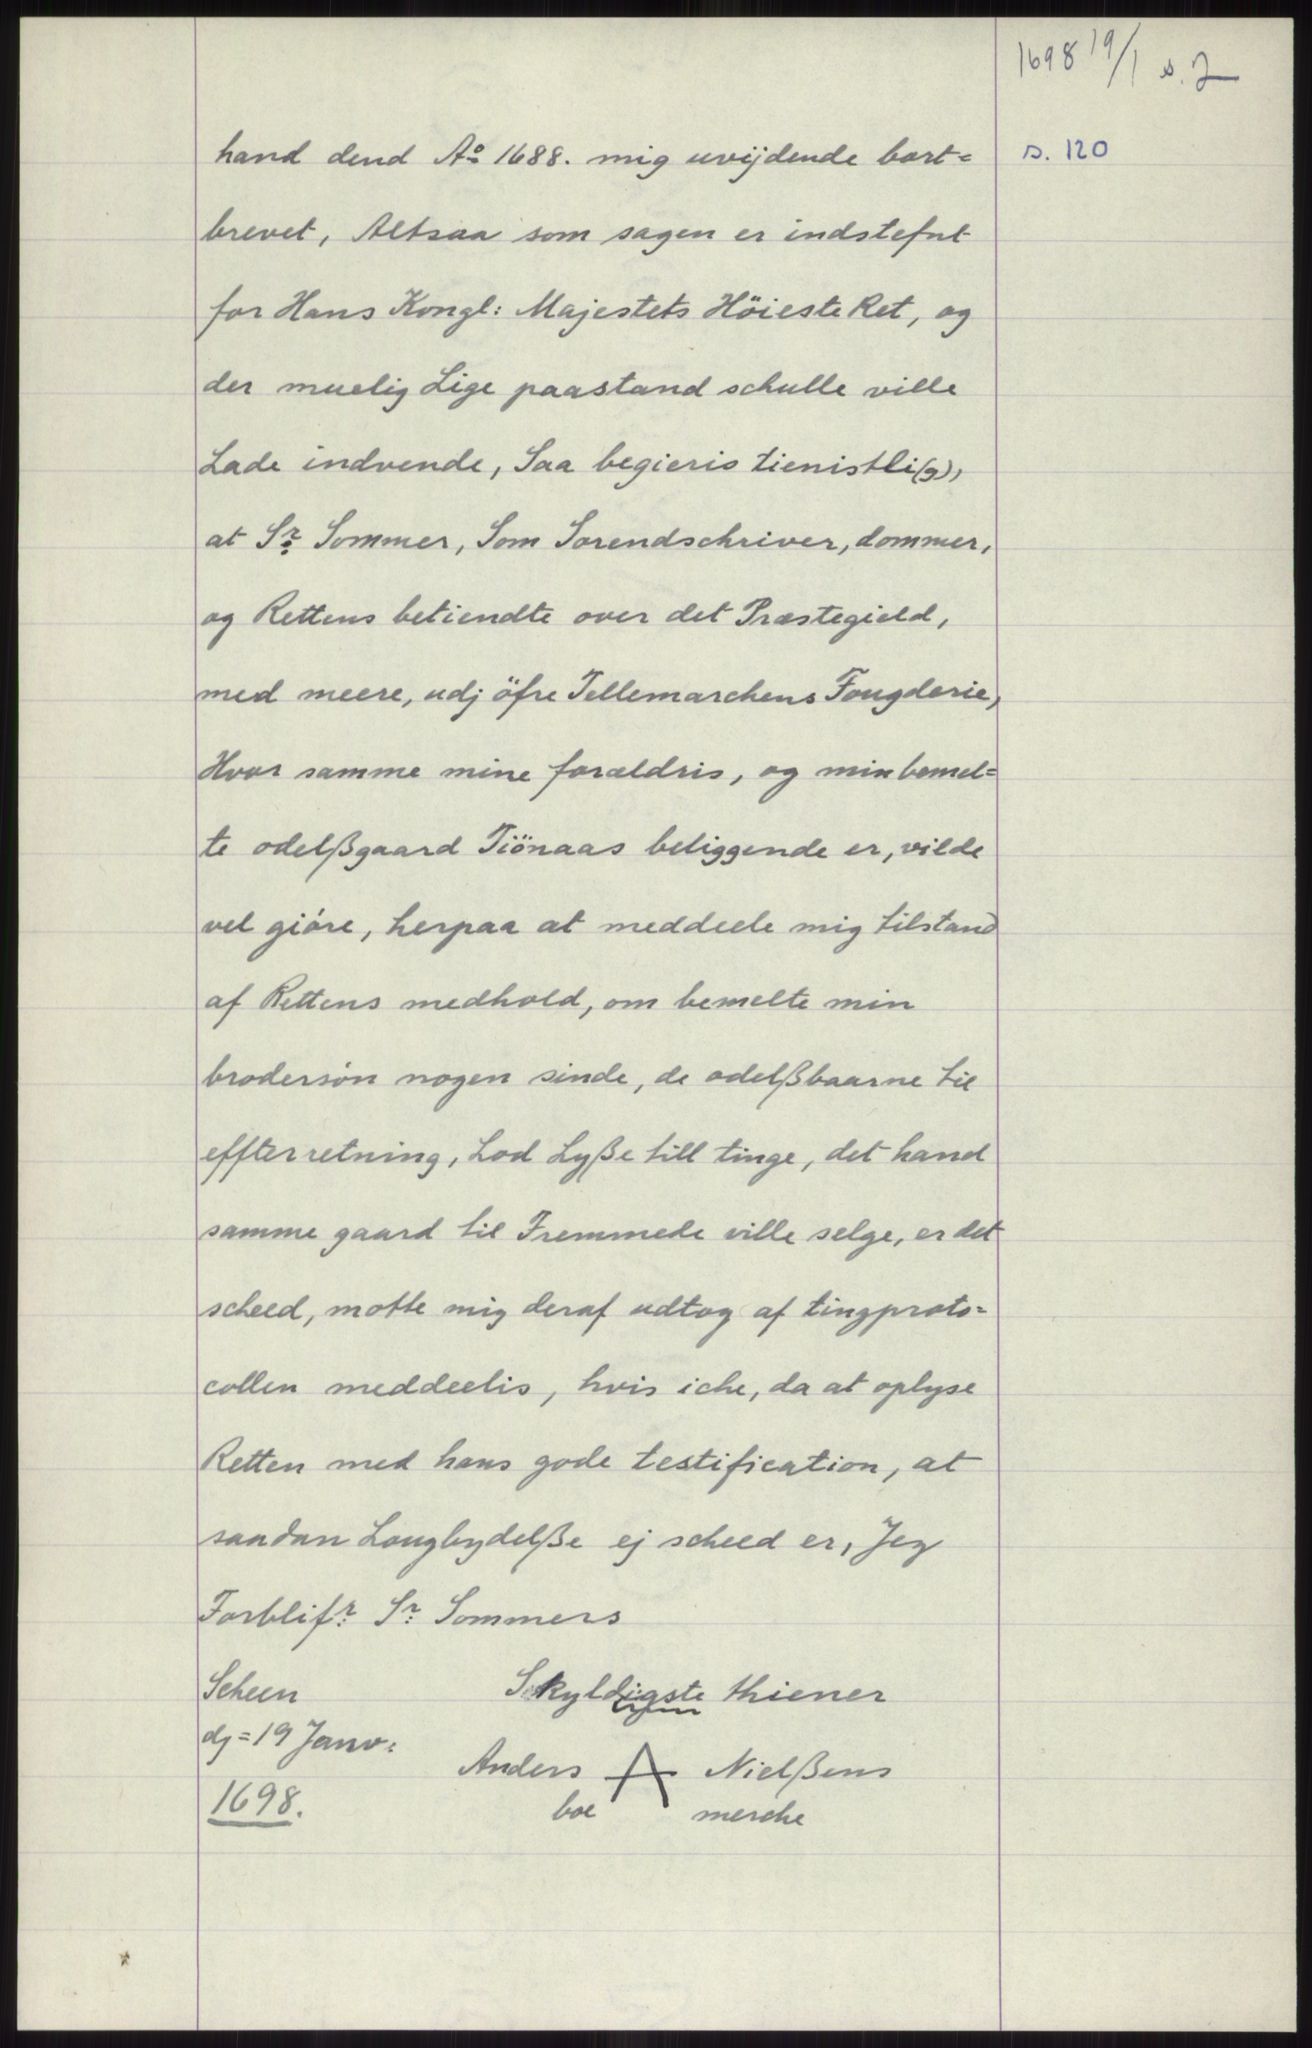 1698 19/1 s. 2
hand dend Aº 1688. mig uvijdende bort=
s. 120
brevet, Altsaa som sagen er indstefnt
for Hans Kongl: Majestets Höieste Ret, og
der muelig Lige paastand schulle ville
Lade indvende, Saa begieris tienistli(g),
at Sr. Sommer, Som Sorendschriver, dommer,
og Rettens betiendte over det Præstegield,
med meere, udj öfre Tellemarchens Fougderie,
Hvor samme mine forældris, og min bemel=
te odelßgaard Tiönaas beliggende er, vilde
vel gióre, herpaa at meddeele mig tilstand
af Rettens medhold, om bemelte min
brodersón nogen sinde, de odelßbaarne til
effterretning, Lod Lyße till tinge, det hand
samme gaard til Fremmede ville selge, er det
scheed, motte mig deraf udtog af tingproto=
collen meddeelis, hvis iche, da at oplyse
Retten med hans gode testification, at
saadan Lougbydelße ej scheed er, Jeg
Forblifr. Sr. Sommers
Scheen Skyldigste thiener
dj=19 Janv:
Anders A Nielßens
1698. boe merche